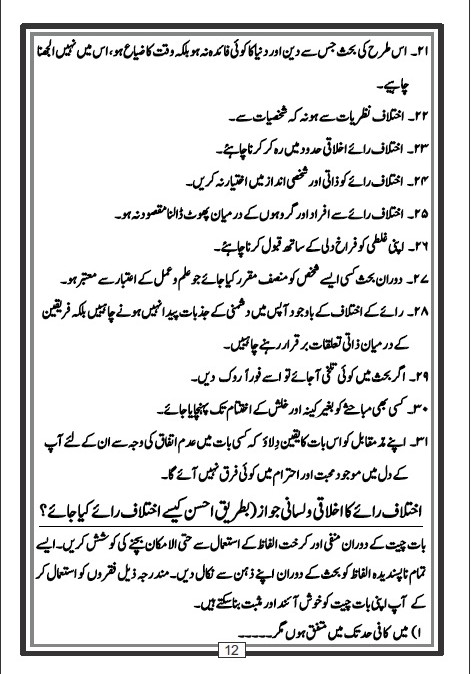 ۲۱۔ اس طرح کی بحث جس سے دین اور دنیا کا کوئی فائدہ نہ ہو بلکہ وقت کا ضیاع ہو، اس میں نہیں الجھنا
چاہیے۔
۲۲۔ اختلاف نظریات سے ہو نہ کہ شخصیات سے۔
۲۳۔ اختلاف رائے اخلاقی حدود میں رہ کر کرنا چاہئے۔
۲۴۔ اختلاف رائے کو ذاتی اور شخصی انداز میں اختیار نہ کریں۔
۲۵۔ اختلاف رائے سے افراد اور گروہوں کے درمیان پھوٹ ڈالنا مقصود نہ ہو۔
۲۶۔ اپنی غلطی کو فراخ دلی کے ساتھ قبول کرنا چاہئے۔
۲۷۔ دوران بحث کسی ایسے شخص کو منصف مقرر کیا جائے جو علم و عمل کے اعتبار سے معتبر ہو۔
۲۸۔ رائے کے اختلاف کے باوجود آپس میں دشمنی کے جذبات پیدا نہیں ہونے چاہئیں بلکہ فریقین
کے درمیان ذاتی تعلقات برقرار رہنے چاہئیں۔
۲۹۔ اگر بحث میں کوئی تلخی آجائے تو اسے فوراً روک دیں۔
۳۰۔ کسی بھی مباحثے کو بغیر کینہ اور خلش کے اختتام تک پہنچایا جائے۔
۳۱۔ اپنے مدِّ مقابل کو اس بات کا یقین دِلاؤ کہ کسی بات میں عدم اتفاق کی وجہ سے ان کے لئے آپ
کے دل میں موجود محبت اور احترام میں کوئی فرق نہیں آئے گا۔
اختلاف رائے کا اخلاقی و لسانی جواز (بطریق احسن کیسے اختلاف رائے کیا جائے؟
بات چیت کے دوران منفی اور کرخت الفاظ کے استعمال سے حتی الامکان بچنے کی کوشش کریں۔ ایسے
تمام ناپسندیدہ الفاظ کو بحث کے دوران اپنے ذہن سے نکال دیں۔ مندرجہ ذیل فقروں کو استعمال کر
کے آپ اپنی بات چیت کو خوش آئند اور مثبت بنا سکتے ہیں۔
۱) میں کافی حد تک میں متفق ہوں مگر۔۔۔۔۔
12